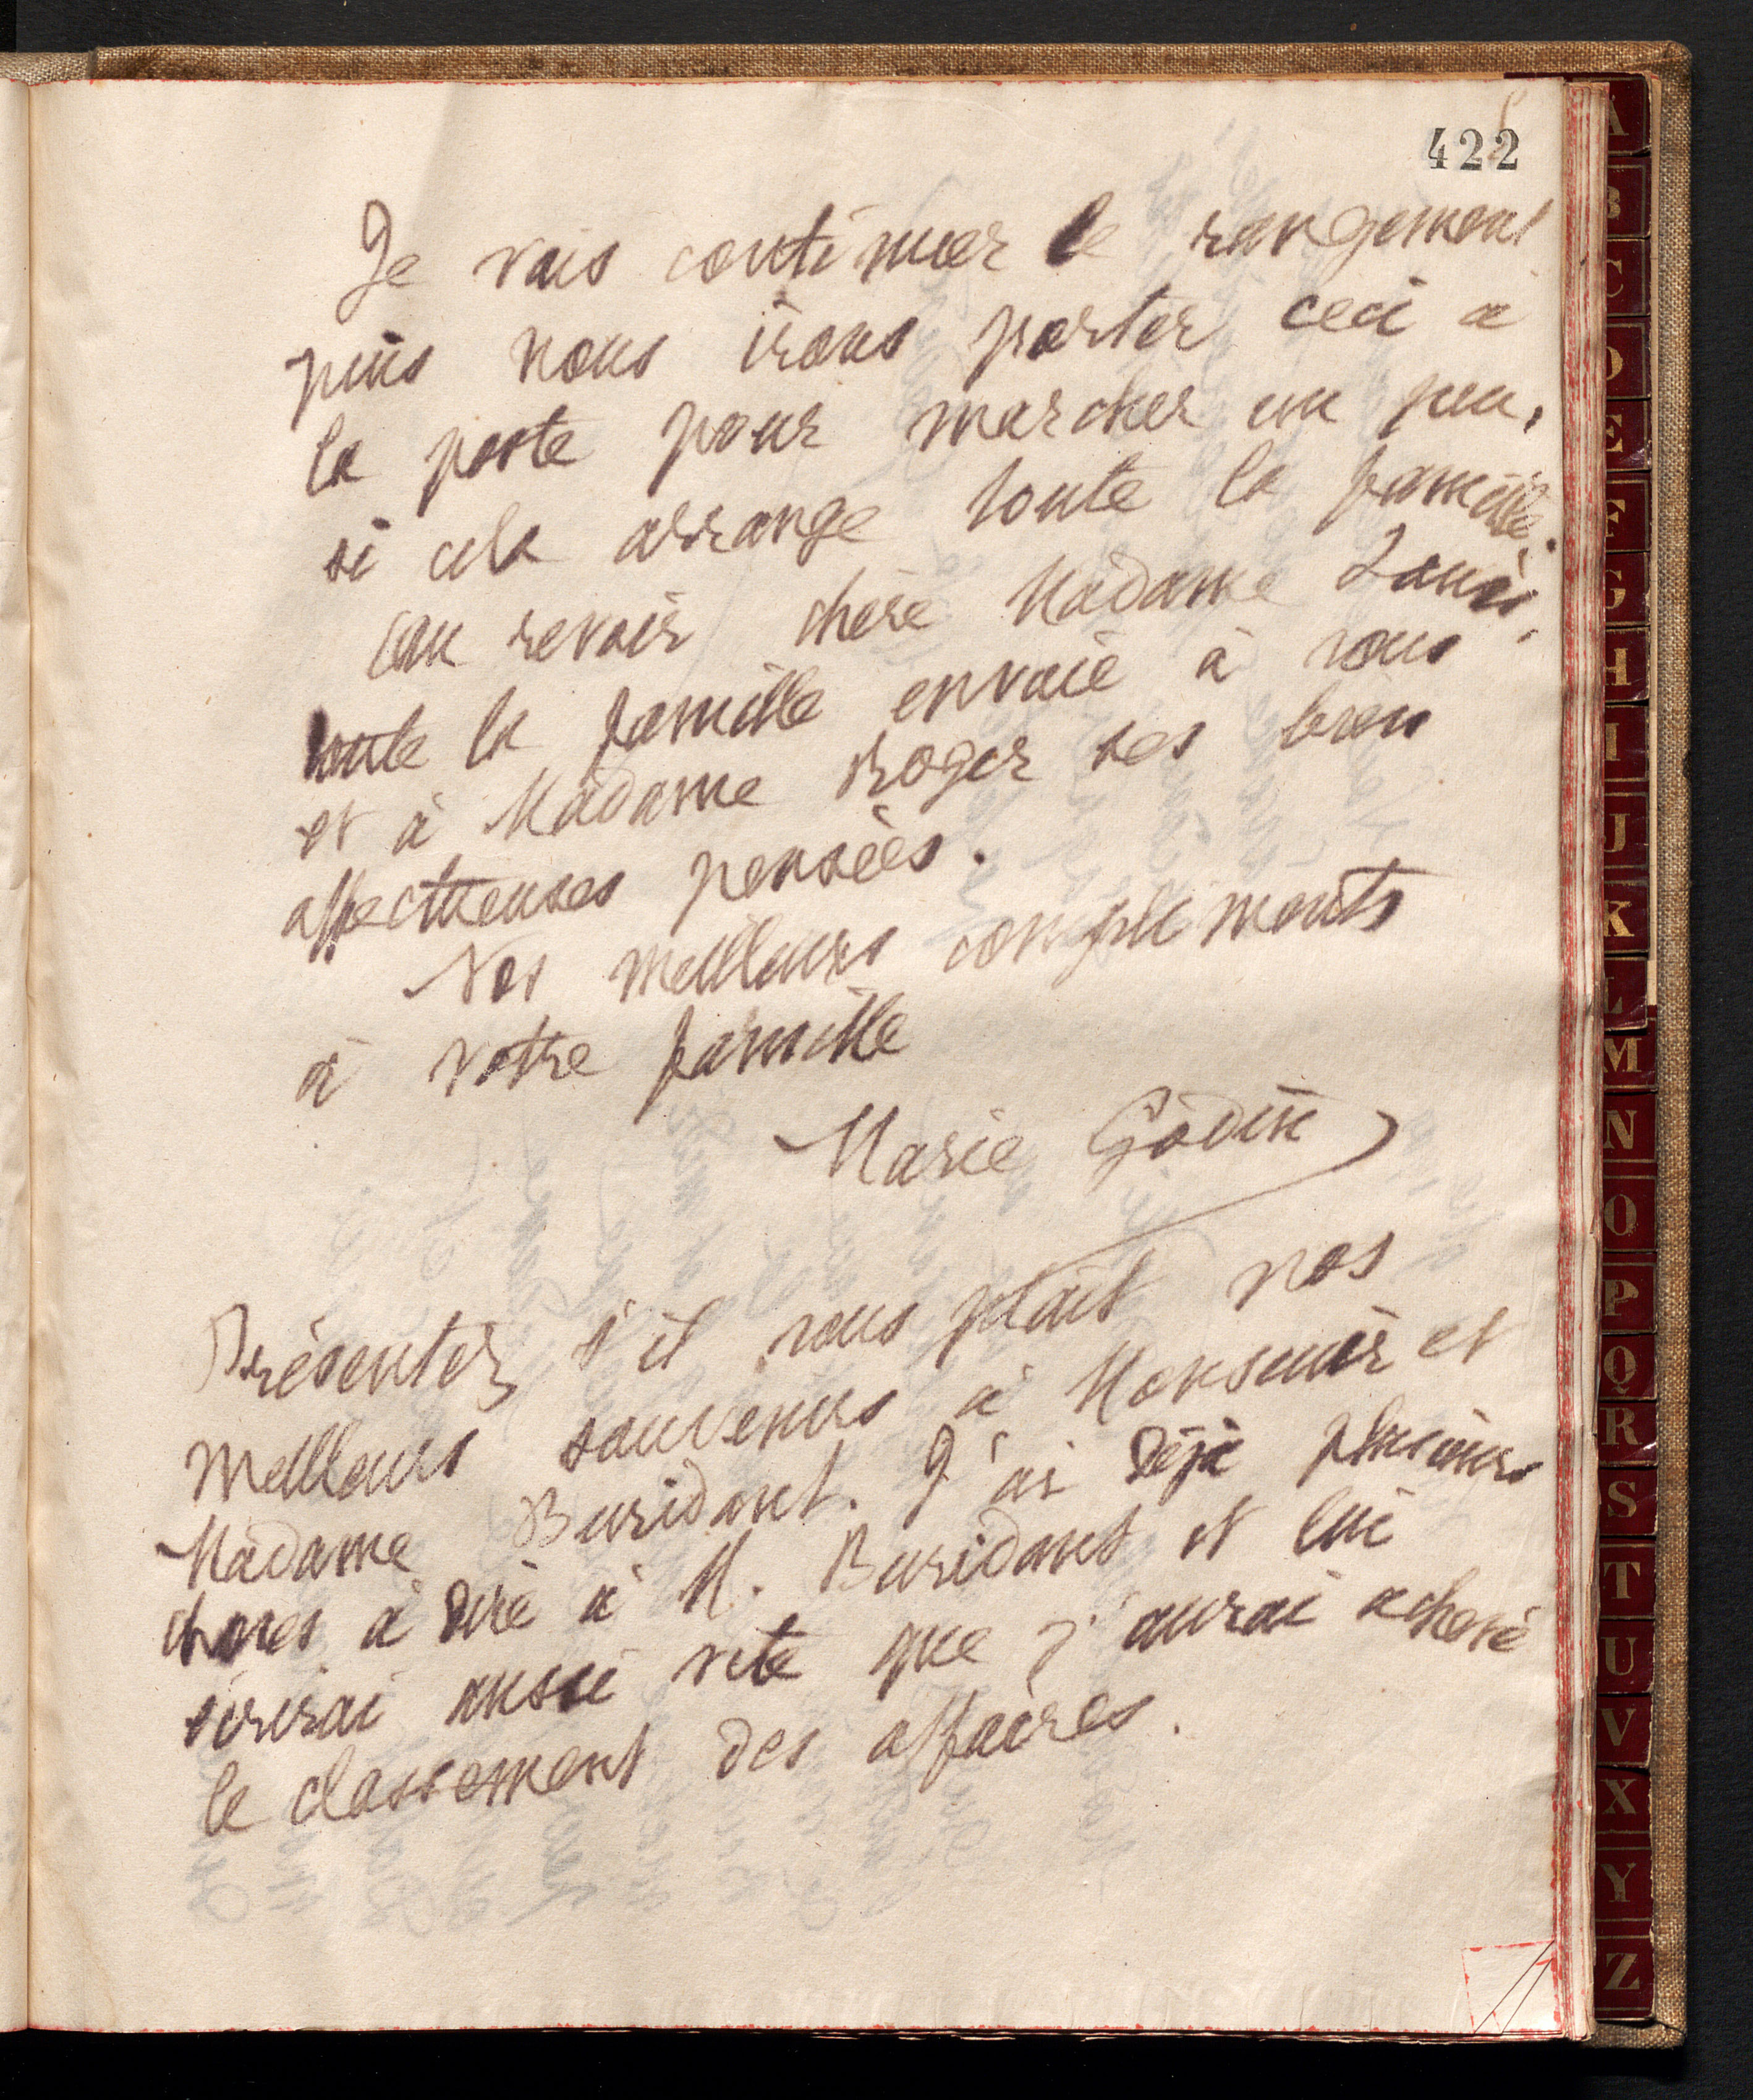 422
Je vais continuer le rangement
puis nous irons porter ceci à
la poste pour marcher un peu,
si cela arrange toute la famille.
Au revoir chère Madame Louis,
toute la famille envoie à vous
et à Madame Roger ses bien
affectueuses pensées.
Nos meilleurs compliments
à votre famille
Marie Godin
Présentez s'il vous plait nos
meilleurs souvenirs à Monsieur et
Madame Buridant. J'ai déjà plusieurs
choses à dire à M. Buridant et lui
écrirai aussi vite que j'aurai achevé
le classement des affaires.
A
B
C
D
E
F
G
H
I
J
K
L
M
N
O
P
Q
R
S
T
U
V
X
Y
Z